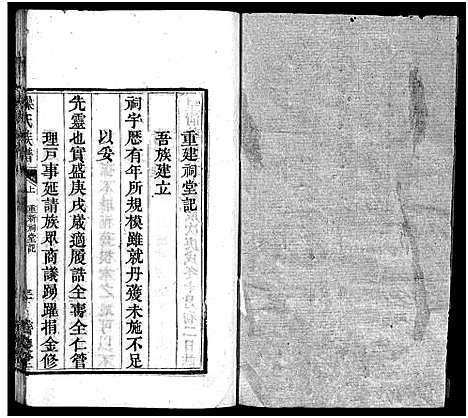 重建祠堂記
吾族建立
祠宇歷有年所規模雖就丹雘未施不足
以妥
先靈也實盛庚戌歲適履誥全壽全仁管
理戸事延請族眾商議踴躍捐金修
氏族譜
上
重新祠堂記